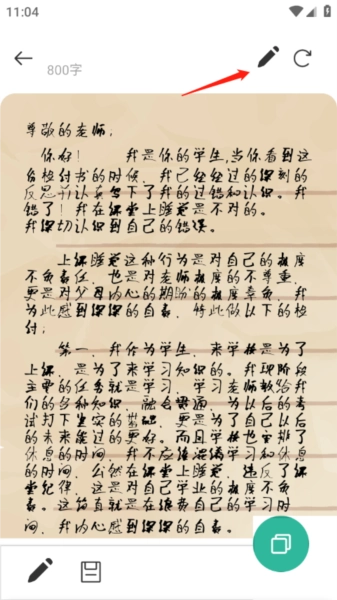 11:04
800字
尊敬的老师,
你好! 我是你的学生,当你看到这
份检讨书的时候,我已经经过的深刻的
反思并认真写下了我的过错和认识。我
错了!我在课堂上睡觉是不对的。
我深切认识到自己的错误。
上课睡觉这种行为是对自己的极度
不负责任,也是对老师极度的不尊重,
更是对父母内心的期盼的极度辜负,我
为此感到深深的自责,特此做以下的检
讨:
第一,我作为学生,来学校是为了
上课,是为了来学习知识的。我现阶段
主要的任务就是学习,学习老师教给我
们的各种知识,融会贯通,为以后的考
试打下坚实的基础,更是为了自己以后
的未来能过的更好。而且学校也安排了
休息的时间,我不应该混淆学习和休息
的时间,公然在课堂上睡觉,违反了课
堂纪律,这是对自己学业的极度不负
责。这简直就是在浪费自己的学习时
间,我内心感到深深的自责。